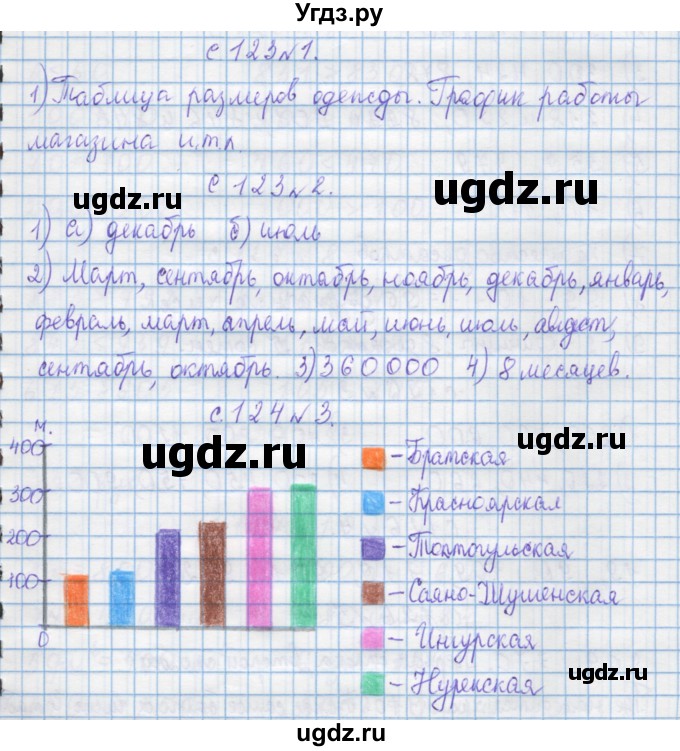 Угдз.ру
с 123 №1.
1) Таблица размеров одежды. График работы
магазина и.т.п.
ugdz.ru
ugdz.ru
с 123 №2.
1) а) декабрь б) июль
2) Март, сентябрь, октябрь, ноябрь, декабрь, январь,
февраль, март, апрель, май, июнь, июль, август,
сентябрь, октябрь. 3) 360000 4) 8 месяцев.
с. 124 №3.
м.
400
300
200
100
0
ugdz.ru
ugdz.ru
– Братская
– Красноярская
– Токтогульская
– Саяно-Шушенская
– Ингурская
– Нурекская
ugdz.ru
ugdz.ru